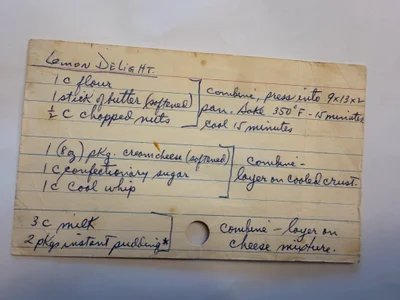 Lemon Delight.
1 c flour
1 stick of butter (softened)
½ c chopped nuts
combine, press into 9x13x2
pan. Bake 350°F - 15 minutes
cool 15 minutes
1 (8 oz) pkg. cream cheese (softened)
1 c confectionary sugar
1 c cool whip
combine -
layer on cooled crust.
3 c milk
2 pkgs instant pudding*
combine - layer on
cheese mixture.